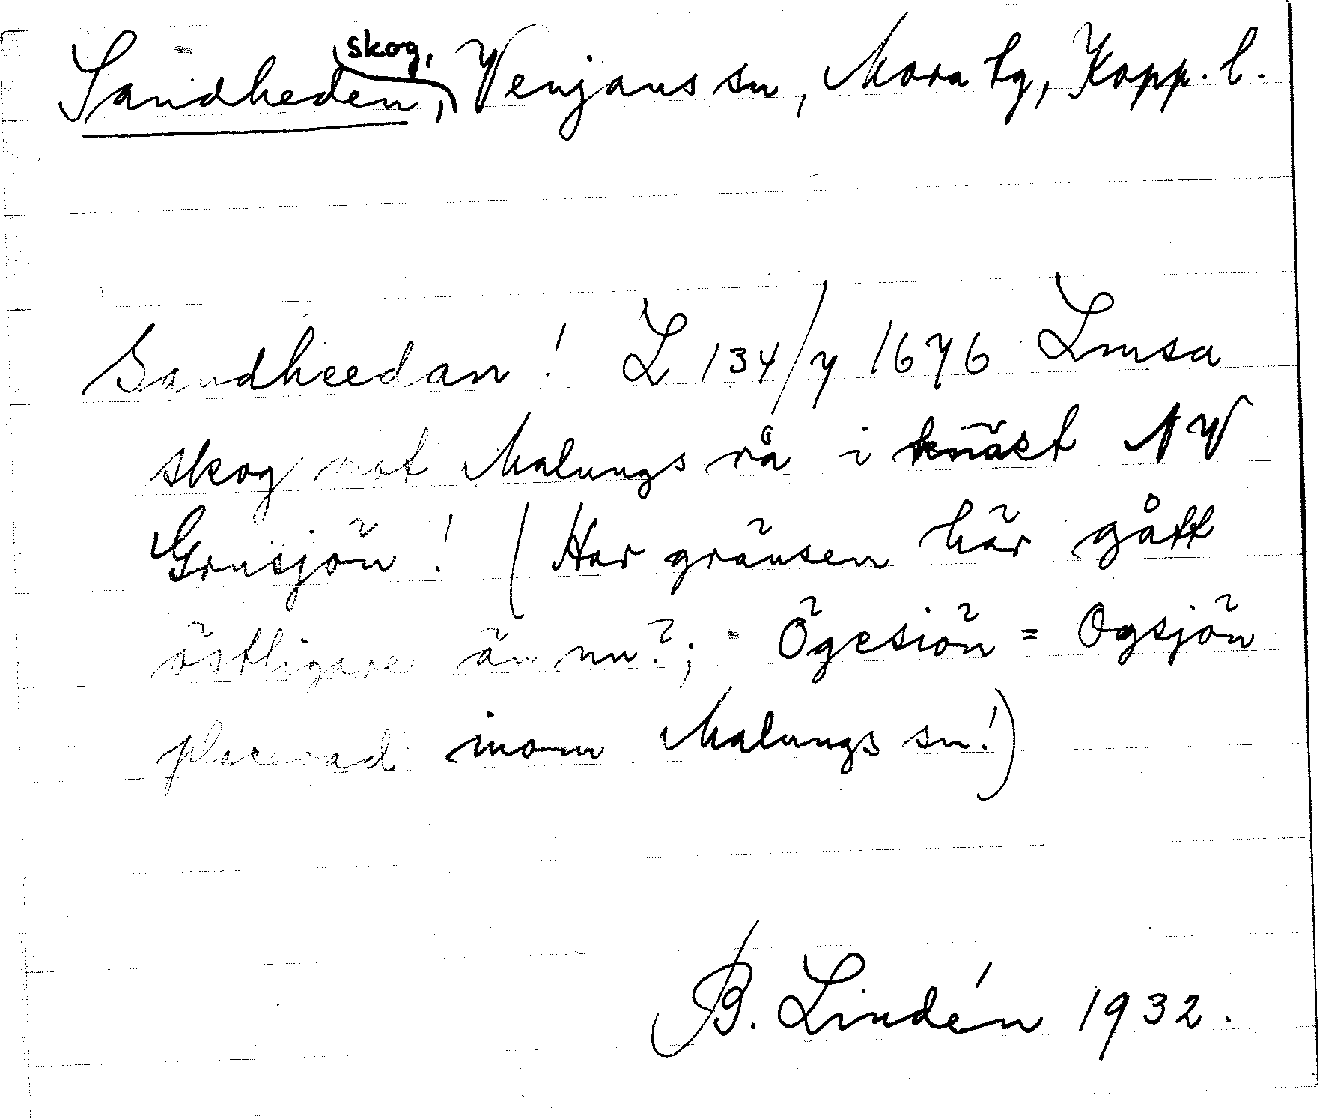 Sandheden, skog, Venjans sn, Mora tg, Kopp. l.
Sandheedan! L 134/7 1676 Lmsa
skog mot Malungs rå i knäet NV
Grusjön! (Har gränsen här gått
östligare än nu?; - Ögesiön = Ogsjön
placerad inom Malungs sn!)
B. Lindén 1932.